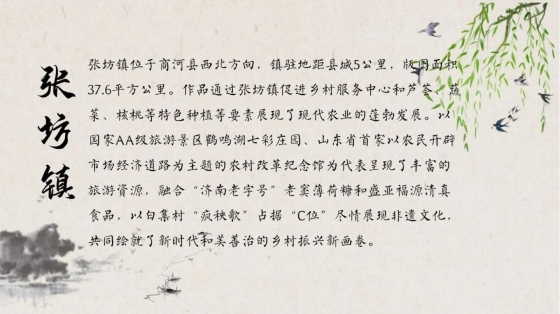 张坊镇
张坊镇位于商河县西北方向，镇驻地距县城5公里，版图面积
37.6平方公里。作品通过张坊镇促进乡村服务中心和芦荟、蔬
菜、核桃等特色种植等要素展现了现代农业的蓬勃发展。以
国家AA级旅游景区鹤鸣湖七彩庄园、山东省首家以农民开辟
市场经济道路为主题的农村改革纪念馆为代表呈现了丰富的
旅游资源，融合“济南老字号”老窦薄荷糖和盛亚福源清真
食品，以白集村“疯秧歌”占据“C位”尽情展现非遗文化，
共同绘就了新时代和美善治的乡村振兴新画卷。